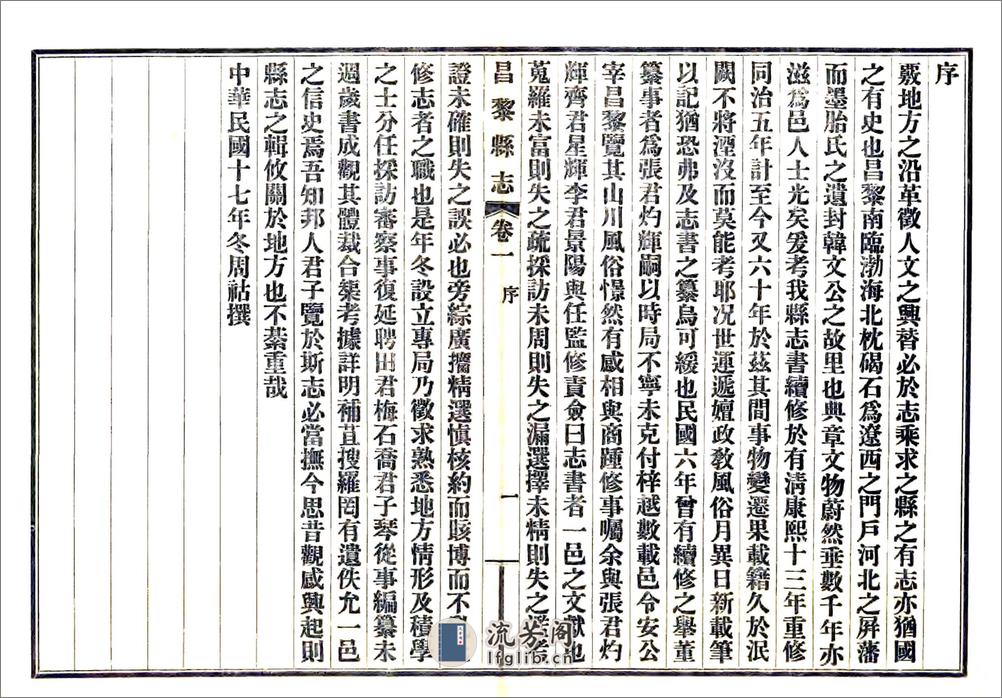 序
覈地方之沿革徵人文之興替必於志乘求之縣之有志亦猶國
之有史也昌黎南臨渤海北枕碣石為遼西之門戶河北之屏藩
而墨胎氏之遺封韓文公之故里也典章文物蔚然垂數千年亦
滋為邑人士光矣爰考我縣志書續修於有淸康熙十三年重修
同治五年計至今又六十年於茲其間事物變遷果載籍久於泯
闕不將湮沒而莫能考耶况世運遞嬗政敎風俗月異日新載筆
以記猶恐弗及志書之纂烏可緩也民國六年曾有續修之舉董
纂事者為張君灼輝嗣以時局不寧未克付梓越數載邑令安公
宰昌黎覽其山川風俗憬然有感相與商踵修事囑余與張君灼
輝齊君星輝李君景陽與任監修責僉曰志書者一邑之文獻也
蒐羅未富則失之疏採訪未周則失之漏選擇未精則失之
昌黎縣志
卷一
序
一
證未確則失之誤必也旁綜廣攟精選愼核約而賅博而不
修志者之職也是年冬設立專局乃徵求熟悉地方情形及積學
之士分任採訪審察事復延聘田君梅石喬君子琴從事編纂未
週歲書成觀其體裁合榘考據詳明補苴搜羅罔有遺佚允一邑
之信史焉吾知邦人君子覽於斯志必當撫今思昔觀感興起則
縣志之輯攸關於地方也不綦重哉
中華民國十七年冬周祜撰
流芳阁
lfglib.cn